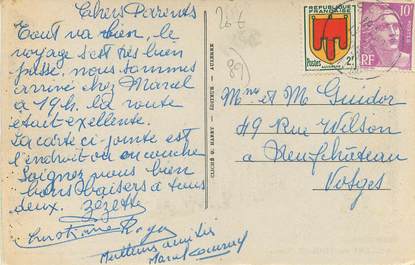 Chers Parents
Tout va bien, le
voyage s'est très bien
passé. nous sommes
arrivé chez Marcel
à 19h. la route
était exellente.
la carte ci-jointe est
l'endroit ou on couche
Soignez vous bien
bons baisers à tous
deux. Zezette
Meilleurs amitiés
Marcel
26 €
89)
CLICHÉ G. HARRY - ÉDITEUR - AUXERRE
RÉPUBLIQUE
FRANÇAISE
Postes 2F
10F
RF
Mme et M Guidor
49 Rue Wilson
à Neufchâteau
Vosges